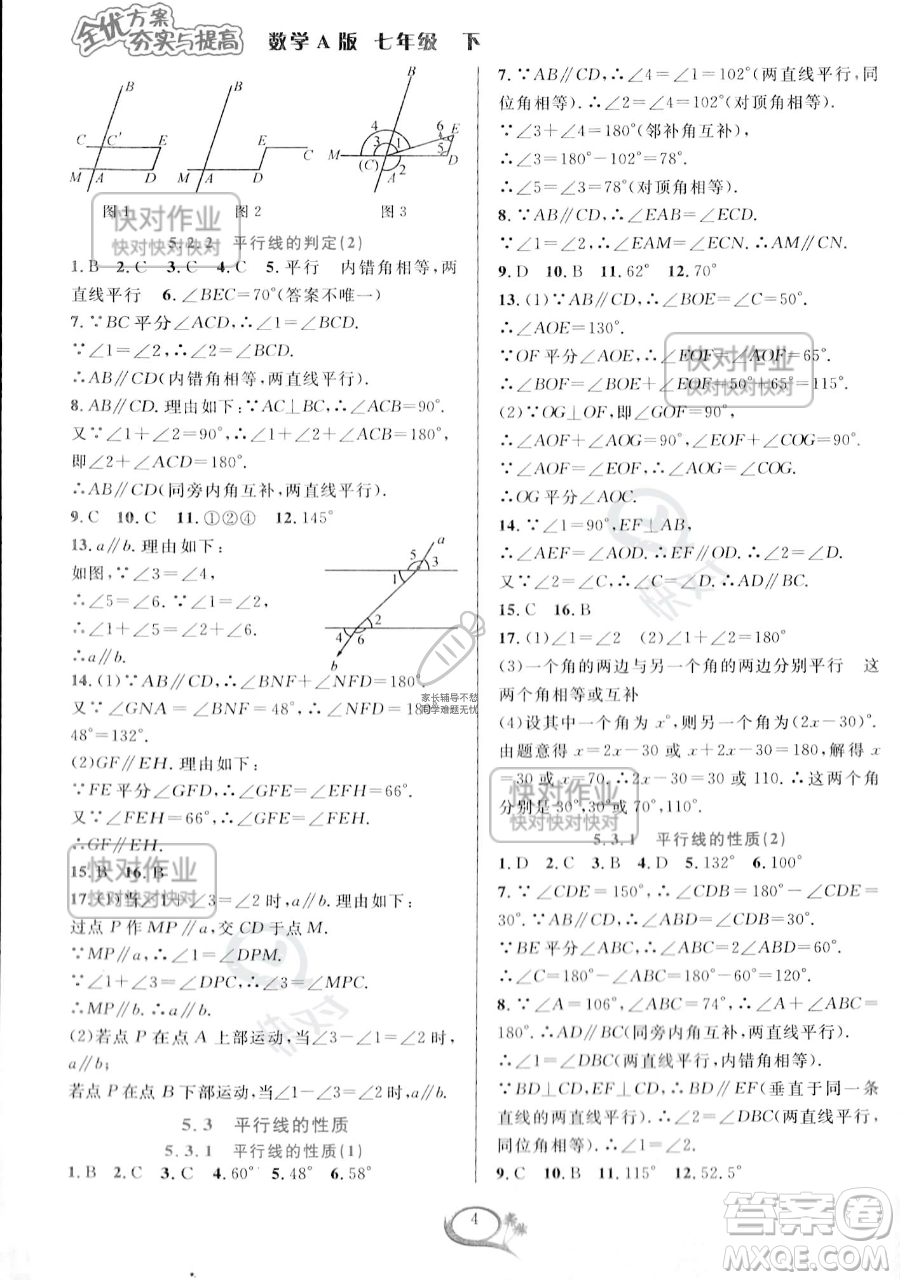 全优方案
夯实与提高 数学A版 七年级 下
B
C C′ E
M A D
图1
B
E C
M A D
图2
B
4 6 E
3 1 5
M (C) 2 D
A
图3
5.2.2 平行线的判定(2)
1.B 2.C 3.C 4.C 5.平行 内错角相等,两
直线平行 6.∠BEC=70°(答案不唯一)
7.∵BC平分∠ACD,∴∠1=∠BCD.
∵∠1=∠2,∴∠2=∠BCD.
∴AB∥CD(内错角相等,两直线平行).
8.AB∥CD.理由如下:∵AC⊥BC,∴∠ACB=90°.
又∵∠1+∠2=90°,∴∠1+∠2+∠ACB=180°,
即∠2+∠ACD=180°.
∴AB∥CD(同旁内角互补,两直线平行).
9.C 10.C 11.①②④ 12.145°
13.a∥b.理由如下:
如图,∵∠3=∠4,
∴∠5=∠6.∵∠1=∠2,
∴∠5+∠1=∠2+∠6.
∴a∥b.
a
5 3
1
2
4 6
b
14.(1)∵AB∥CD,∴∠BNF+∠NFD=180°.
又∵∠GNA=∠BNF=48°,∴∠NFD=180°-
48°=132°.
(2)GF∥EH.理由如下:
∵FE平分∠GFD,∴∠GFE=∠EFD=66°.
又∵∠FEH=66°,∴∠GFE=∠FEH.
∴GF∥EH.
15.B 16.B
17.(1)当∠1+∠3=∠2时,a∥b.理由如下:
过点P作MP∥a,交CD于点M.
∵MP∥a,∴∠1=∠DPM.
∵∠1+∠3=∠2,∴∠3=∠MPC.
∴MP∥b.∴a∥b.
(2)若点P在点A上部运动,当∠3-∠1=∠2时,
a∥b;
若点P在点B下部运动,当∠1-∠3=∠2时,a∥b.
5.3 平行线的性质
5.3.1 平行线的性质(1)
1.B 2.C 3.C 4.60° 5.48° 6.58°
7.∵AB∥CD,∴∠4=∠1=102°(两直线平行,同
位角相等).∴∠2=∠4=102°(对顶角相等).
∵∠3+∠4=180°(邻补角互补),
∴∠3=180°-102°=78°.
∴∠5=∠3=78°(对顶角相等).
8.∵AB∥CD,∴∠EAB=∠ECD.
∵∠1=∠2,∴∠EAM=∠ECN.∴AM∥CN.
9.D 10.B 11.62° 12.70°
13.(1)∵AB∥CD,∴∠BOE=∠C=50°.
∴∠AOE=130°.
∵OF平分∠AOE,∴∠EOF=∠AOF=65°.
∴∠BOF=∠BOE+∠EOF=50°+65°=115°.
(2)∵OG⊥OF,即∠GOF=90°,
∴∠AOF+∠AOG=90°,∠EOF+∠COG=90°.
∵∠AOF=∠EOF,∴∠AOG=∠COG.
∴OG平分∠AOC.
14.∵∠1=90°,EF⊥AB,
∴∠AEF=∠AOD.∴EF∥OD.∴∠2=∠D.
又∵∠2=∠C,∴∠C=∠D.∴AD∥BC.
15.C 16.B
17.(1)∠1=∠2 (2)∠1+∠2=180°
(3)一个角的两边与另一个角的两边分别平行 这
两个角相等或互补
(4)设其中一个角为x°,则另一个角为(2x-30)°.
由题意得x=2x-30或x+2x-30=180,解得x
=30或x=70.∴2x-30=30或110.∴这两个角
分别是30°,30°或70°,110°.
5.3.1 平行线的性质(2)
1.D 2.C 3.B 4.D 5.132° 6.100°
7.∵∠CDE=150°,∴∠CDB=180°-∠CDE=
30°.∵AB∥CD,∴∠ABD=∠CDB=30°.
∵BE平分∠ABC,∴∠ABC=2∠ABD=60°.
∴∠C=180°-∠ABC=180°-60°=120°.
8.∵∠A=106°,∠ABC=74°,∴∠A+∠ABC=
180°.∴AD∥BC(同旁内角互补,两直线平行).
∴∠1=∠DBC(两直线平行,内错角相等).
∵BD⊥CD,EF⊥CD,∴BD∥EF(垂直于同一条
直线的两直线平行).∴∠2=∠DBC(两直线平行,
同位角相等).∴∠1=∠2.
9.C 10.B 11.115° 12.52.5°
4
快对作业
快对快对快对
快对作业
快对快对快对
快对作业
快对快对快对
快对作业
快对快对快对
快对
快对
家长辅导不愁
同学难题无忧
答案圈
MXQE.COM